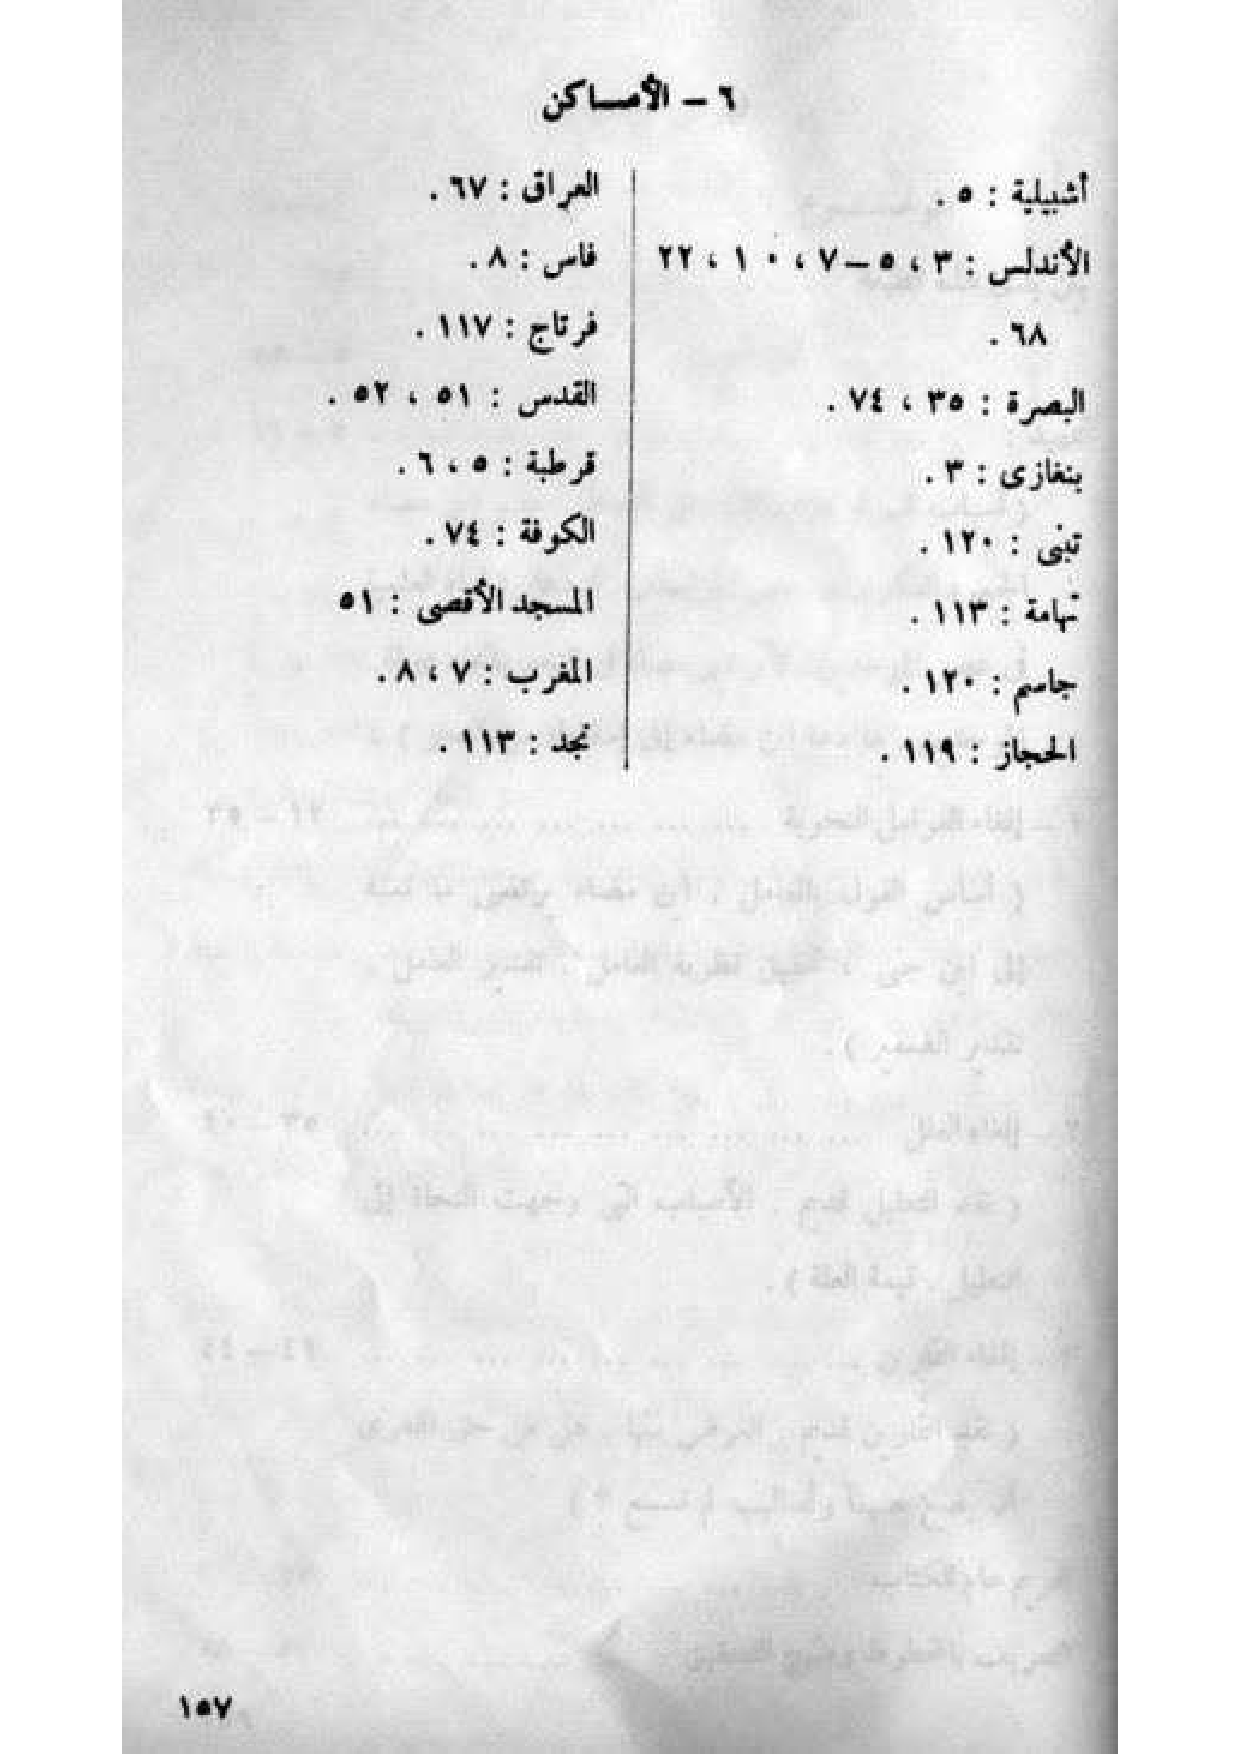 ٦ – الأمـــاكن
أشبيلية : ٥ .
الأندلس : ٣ ، ٥ – ٧ ، ١٠ ، ٢٢
٦٨ .
البصرة : ٣٥ ، ٧٤ .
بنغازى : ٣ .
تبنى : ١٢٠ .
تهامة : ١١٣ .
جاسم : ١٢٠ .
الحجاز : ١١٩ .
العراق : ٦٧ .
فاس : ٨ .
فرتاج : ١١٧ .
القدس : ٥١ ، ٥٢ .
قرطبة : ٥ ، ٦ .
الكوفة : ٧٤ .
المسجد الأقصى : ٥١
المغرب : ٧ ، ٨ .
نجد : ١١٣ .
١٥٧